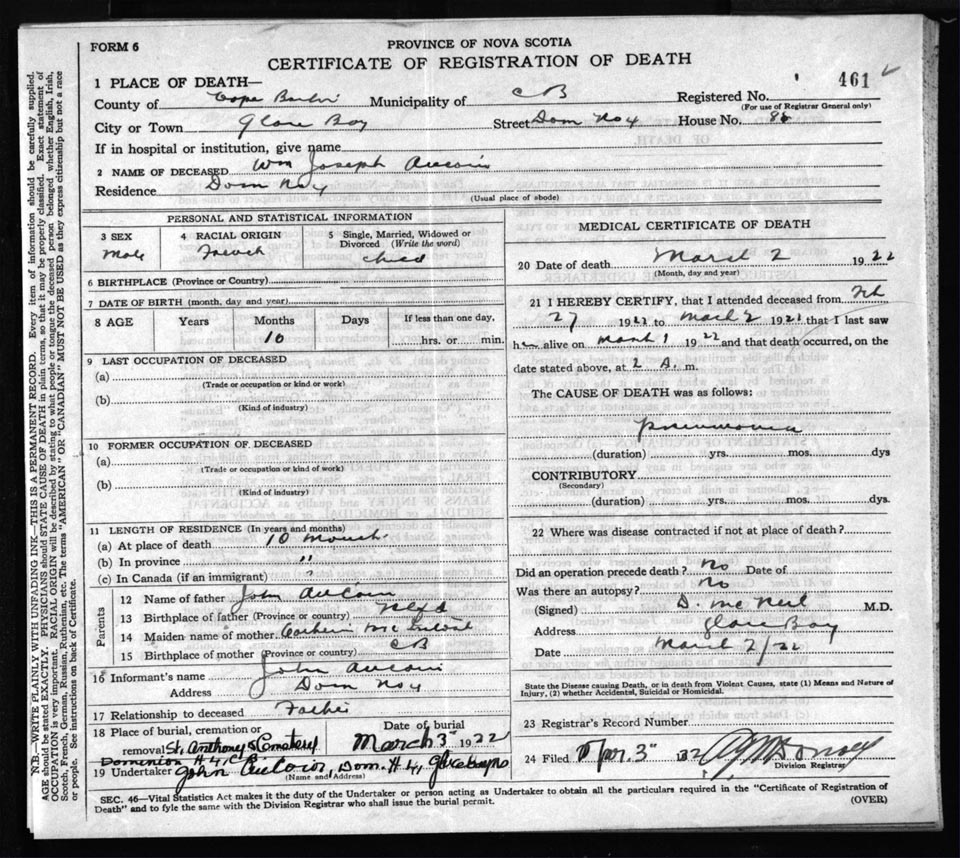 FORM 6
PROVINCE OF NOVA SCOTIA
CERTIFICATE OF REGISTRATION OF DEATH
461
1 PLACE OF DEATH—
County of Cape Breton Municipality of CB Registered No.
(For use of Registrar General only)
City or Town Glace Bay Street Dom No 4 House No. 86
If in hospital or institution, give name
2 NAME OF DECEASED Wm Joseph Aucoin
Residence Dom No 4
(Usual place of abode)
PERSONAL AND STATISTICAL INFORMATION
3 SEX
Male
4 RACIAL ORIGIN
French
5 Single, Married, Widowed or Divorced (Write the word)
child
6 BIRTHPLACE (Province or Country)
7 DATE OF BIRTH (month, day and year)
8 AGE Years Months Days If less than one day,
10 hrs. or min.
9 LAST OCCUPATION OF DECEASED
(a)
(Trade or occupation or kind or work)
(b)
(Kind of industry)
10 FORMER OCCUPATION OF DECEASED
(a)
(Trade or occupation or kind of work)
(b)
(Kind of industry)
11 LENGTH OF RESIDENCE (In years and months)
(a) At place of death 10 month
(b) In province "
(c) In Canada (if an immigrant)
Parents
12 Name of father John Aucoin
13 Birthplace of father (Province or country) Nfld
14 Maiden name of mother
15 Birthplace of mother (Province or country) CB
16 Informant's name John Aucoin
Address Dom No 4
17 Relationship to deceased Father
18 Place of burial, cremation or Date of burial
removal St. Anthony's Cemetery March 3 1922
Dominion #4, C.B.
19 Undertaker John Aucoin Dom. #4, Glace Bay NS
(Name and Address)
MEDICAL CERTIFICATE OF DEATH
20 Date of death March 2 1922
(Month, day and year)
21 I HEREBY CERTIFY, that I attended deceased from Feb
27 1922 to March 2 1922 that I last saw
h alive on March 1 1922 and that death occurred, on the
date stated above, at 2 A. m.
The CAUSE OF DEATH was as follows:
pneumonia
(duration) yrs. mos. dys
CONTRIBUTORY
(Secondary)
(duration) yrs. mos. dys.
22 Where was disease contracted if not at place of death?
Did an operation precede death? No Date of
Was there an autopsy? No
(Signed) D. McNeil M.D.
Address Glace Bay
Date March 2/22
State the Disease causing Death, or in death from Violent Causes, state (1) Means and Nature of
Injury, (2) whether Accidental, Suicidal or Homicidal.
23 Registrar's Record Number
24 Filed Apr. 3
Division Registrar
SEC. 46—Vital Statistics Act makes it the duty of the Undertaker or person acting as Undertaker to obtain all the particulars required in the "Certificate of Registration of
Death" and to fyle the same with the Division Registrar who shall issue the burial permit.
(OVER)
N.B.—WRITE PLAINLY WITH UNFADING INK—THIS IS A PERMANENT RECORD. Every item of information should be carefully supplied.
AGE should be stated EXACTLY. PHYSICIANS should STATE CAUSE OF DEATH in plain terms, so that it may be properly classified. Exact statement of
OCCUPATION is very important. RACIAL ORIGIN will be described by stating to what people or tongue the deceased person belonged whether English, Irish,
Scotch, French, German, Russian, Ruthenian, etc. The terms "AMERICAN" OR "CANADIAN" MUST NOT BE USED as they express citizenship but not a race
or people. See instructions on back of Certificate.